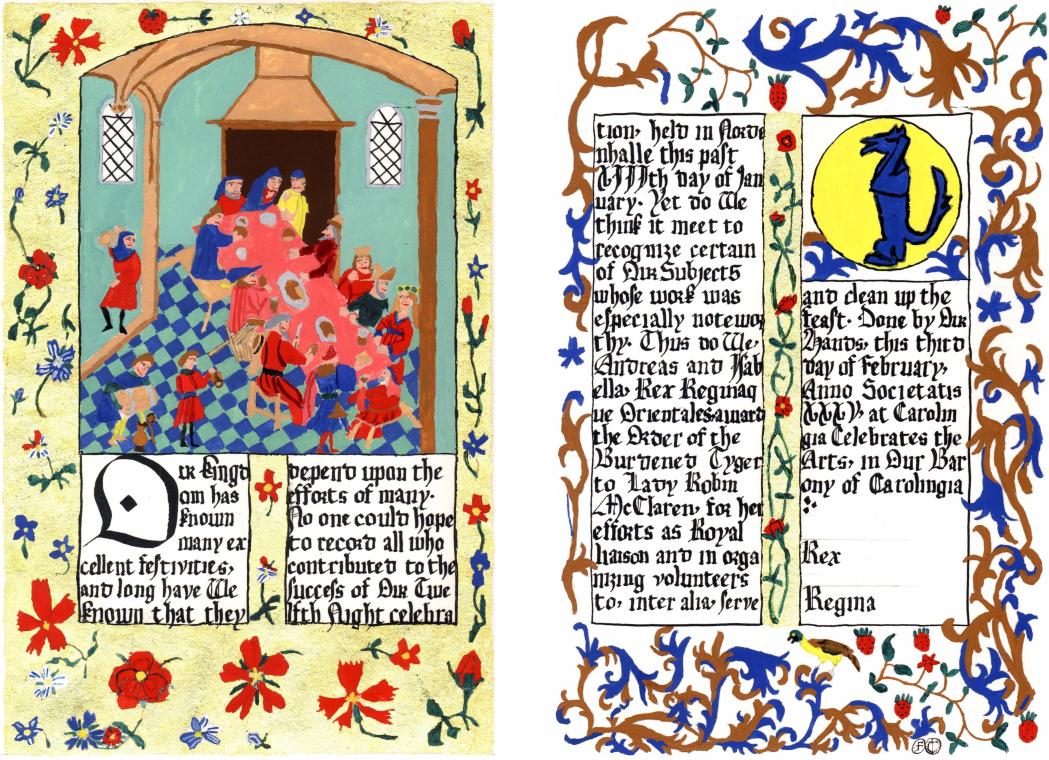 Our Kingd
om has
known
many ex
cellent festivities,
and long have We
known that they
depend upon the
efforts of many.
No one could hope
to record all who
contributed to the
success of Our Twe
lfth Night celebra
tion, held in Norde
nhalle this past
XIIIth day of Jan
uary. Yet do We
think it meet to
recognize certain
of Our Subjects
whose work was
especially notewor
thy. Thus do We,
Andreas and Isab
ella, Rex Reginaq
ue Orientales award
the Order of the
Burdened Tyger
to Lady Robin
McClaren, for her
efforts as Royal
liaison and in orga
nizing volunteers
to, inter alia, serve
and clean up the
feast. Done by Our
Hands, this third
day of February,
Anno Societatis
XXXV, at Carolin
gia Celebrates the
Arts, in Our Bar
ony of Carolingia
Rex
Regina